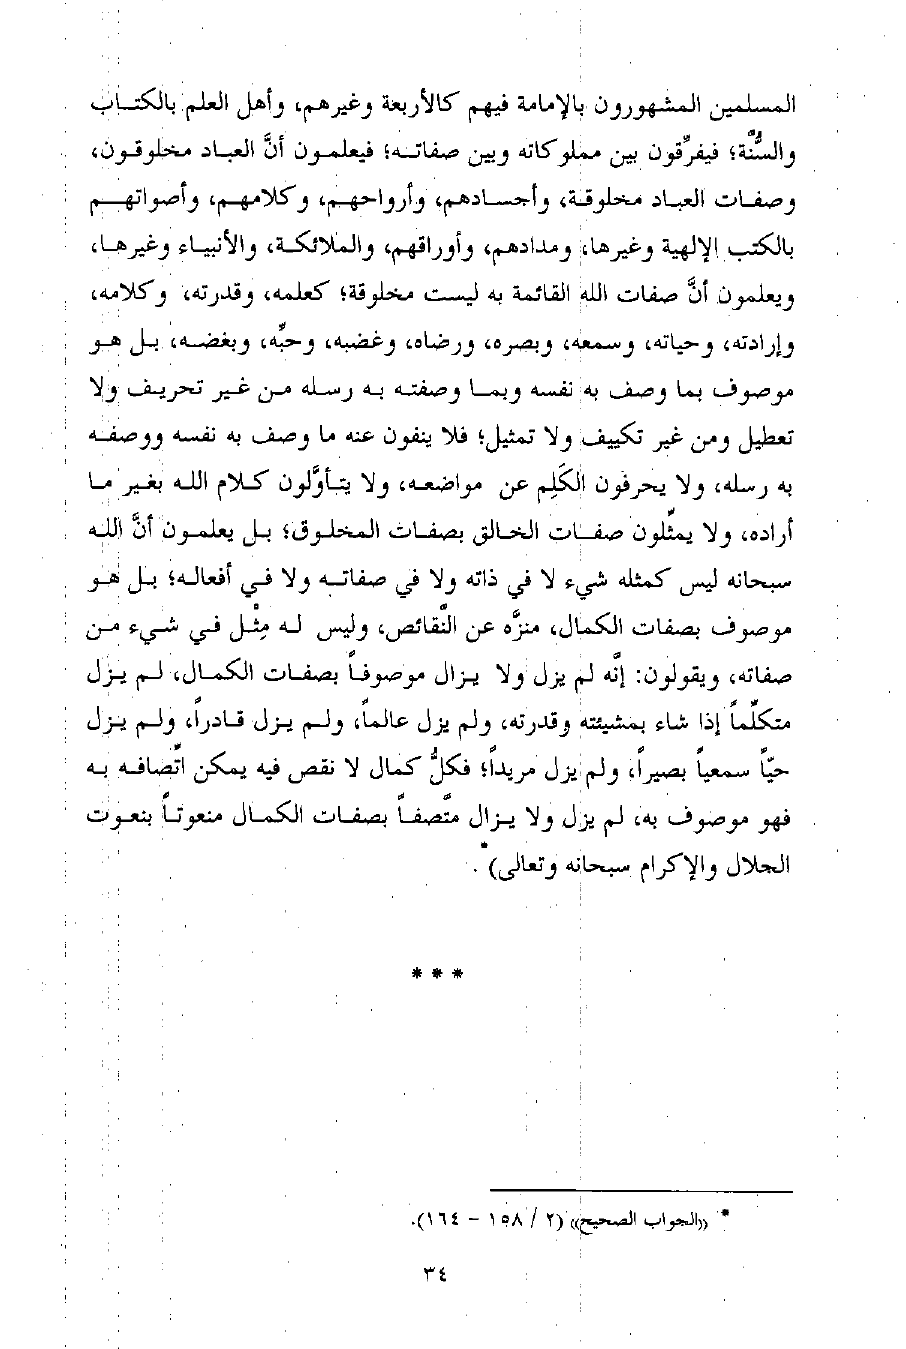 المسلمين المشهورون بالإمامة فيهم كالأربعة وغيرهم، وأهل العلم بالكتاب
والسُّنَّة؛ فيفرِّقون بين مملوكاته وبين صفاته؛ فيعلمون أنَّ العباد مخلوقون،
وصفات العباد مخلوقة، وأجسادهم، وأرواحهم، وكلامهم، وأصواتهم
بالكتب الإلهية وغيرها، ومدادهم، وأوراقهم، والملائكة، والأنبياء وغيرها،
ويعلمون أنَّ صفات الله القائمة به ليست مخلوقة؛ كعلمه، وقدرته، وكلامه،
وإرادته، وحياته، وسمعه، وبصره، ورضاه، وغضبه، وحبِّه، وبغضه، بل هو
موصوف بما وصف به نفسه وبما وصفته به رسله من غير تحريف ولا
تعطيل ومن غير تكييف ولا تمثيل؛ فلا ينفون عنه ما وصف به نفسه ووصفه
به رسله، ولا يحرفون الكَلِم عن مواضعه، ولا يتأوَّلون كلام الله بغير ما
أراده، ولا يمثِّلون صفات الخالق بصفات المخلوق؛ بل يعلمون أنَّ الله
سبحانه ليس كمثله شيء لا في ذاته ولا في صفاته ولا في أفعاله؛ بل هو
موصوف بصفات الكمال، منزَّه عن النَّقائص، وليس له مِثْل في شيء من
صفاته، ويقولون: إنَّه لم يزل ولا يزال موصوفاً بصفات الكمال، لم يزل
متكلِّماً إذا شاء بمشيئته وقدرته، ولم يزل عالماً، ولم يزل قادراً، ولم يزل
حيّاً سمعياً بصيراً، ولم يزل مريداً؛ فكلُّ كمال لا نقص فيه يمكن اتِّصافه به
فهو موصوف به، لم يزل ولا يزال متَّصفاً بصفات الكمال منعوتاً بنعوت
الجلال والإكرام سبحانه وتعالى)*.
* * *
* ((الجواب الصحيح)) (٢ / ١٥٨ – ١٦٤).
٣٤